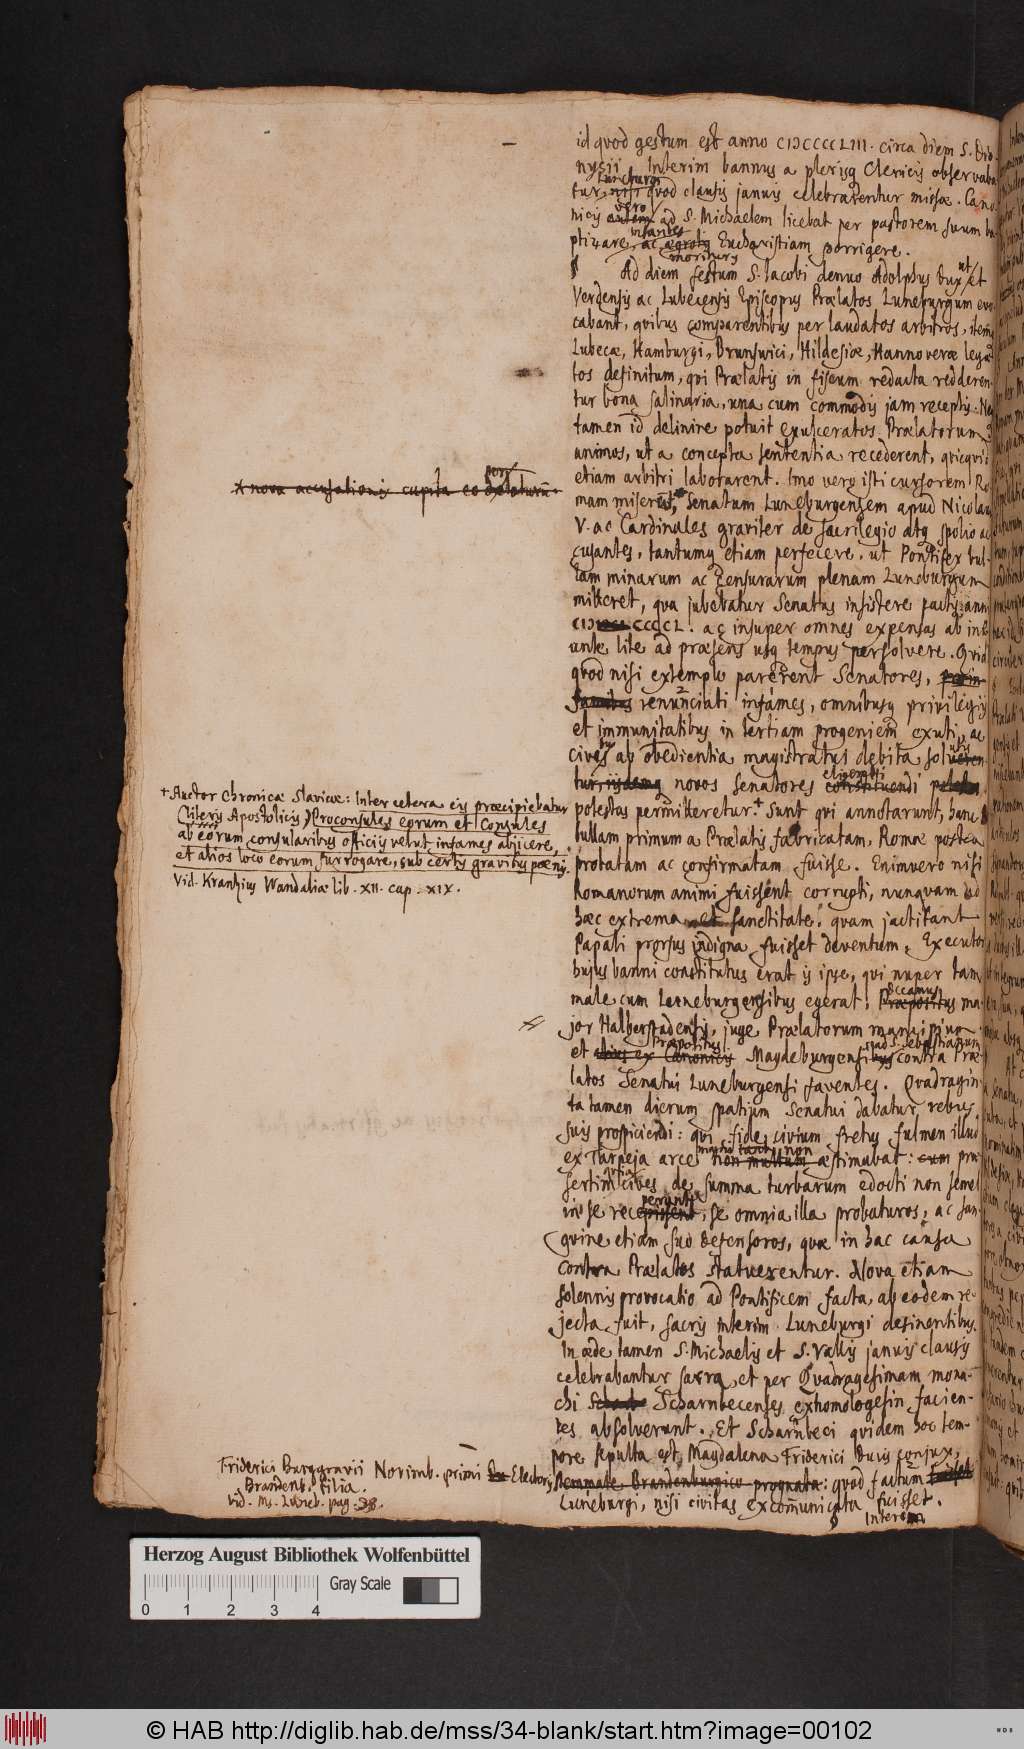 id quod gestum est anno CIƆCCCCLIII. circa diem S. Dio-
nysii. Interim bannus a plerisq Clericis observaba
Luneburgi
tur, nisi quod clausis januis celebrarentur missæ. Cano-
vero
nicis autem ad S. Michaelem licebat per pastorem suum ba
infantes
ptizare, ac ægrotis Eucharistiam porrigere.
morituris
Ad diem festum S. Jacobi denuo Adolphus Dux, ut et
Verdensis ac Lubecensis Episcopus Prælatos Luneburgum evo
cabant, quibus comparentibus per laudatos arbitros, itemq
Lubecæ, Hamburgi, Brunswici, Hildesiæ, Hannoveræ lega
tos definitum, qui Prælatis in fiscum redacta redderen-
tur bona salinaria, una cum commodis jam receptis. Neq
tamen id delinire potuit exulceratos Prælatorum
animos, ut a concepta sententia recederent, quicquid
etiam arbitri laborarent. Imo vero isti cursorem Ro
mam miserūt, Senatum Luneburgensem apud Nicolaum
V. ac Cardinales graviter de sacrilegio atq spolio ac
cusantes, tantumq etiam perfecere, ut Pontifex bul-
lam minarum ac censurarum plenam Luneburgum
mitteret, qua jubebatur Senatus insistere pactis anni
CIƆ CCCCL. ac insuper omnes expensas ab ine
unte lite ad præsens usq tempus persolvere. Quid
quod nisi extemplo parerent Senatores,
renunciati infames, omnibusq privilegiis
et immunitatibus in tertiam progeniem exuti, ac
cives ab obedientia magistratui debita
eligendi
tur, iisdemq novos Senatores constituendi
potestas permitteretur.+ Sunt qui annotarunt, hanc
bullam primum a Prælatis fabricatam, Romæ postea
probatam ac confirmatam fuisse. Enimvero nisi
Romanorum animi fuissent corrupti, nunquam ad
hæc extrema et sanctitate, quam jactitant
Papali prorsus indigna fuisset deventum. Executor
hujus banni constitutus erat is ipse, qui nuper tam
Decanus
male cum Luneburgensibus egerat, Præpositus ma-
jor Halberstadensis, juge Prælatorum mancipium
Præpositus ad S. Sebastianum
et ex Canonicis Magdeburgensibus contra Præ
latos Senatui Luneburgensi faventes. Quadragin
ta tamen dierum spatium Senatui dabatur rebus
suis prospiciendi: qui fide civium fretus fulmen illud
non
ex Tarpeja arce non multum æstimabat: cum præ
sertim cives de summa turbarum edocti non semel
in se recepissent, se omnia illa probaturos, ac san
guine etiam suo defensuros, quæ in hac causa
contra Prælatos statuerentur. Nova etiam
solennis provocatio ad Pontificem facta, ab eodem re-
jecta fuit, sacris interim Luneburgi desinentibus.
In æde tamen S. Michaelis et S. Vallis januis clausis
celebrabantur sacra, et per Quadragesimam mona-
chi Scharnbecenses exhomologesin facien-
tes absolverunt. Et Scharnbeci quidem hoc tem-
pore sepulta est Magdalena Friderici Ducis conjux,
stemmate Brandenburgico prognata: quod factum
Luneburgi, nisi civitas excommunicata fuisset.
Interim
x nova accusationis capita eo
+ Auctor Chronicæ Slavicæ: Inter cetera eis præcipiebatur
(literis Apostolicis) Proconsules eorum et Consules
ab eorum consularibus officiis velut infames abjicere,
et alios loco eorum surrogare, sub certis gravibus pænis.
Vid. Krantzius Wandaliæ lib. XII. cap. XIX.
Friderici Burggravii Norimb. primi Elector.
Brandenb. filia.
vid. Ms. Luneb. pag. 38.
Herzog August Bibliothek Wolfenbüttel
Gray Scale
0 1 2 3 4
© HAB http://diglib.hab.de/mss/34-blank/start.htm?image=00102